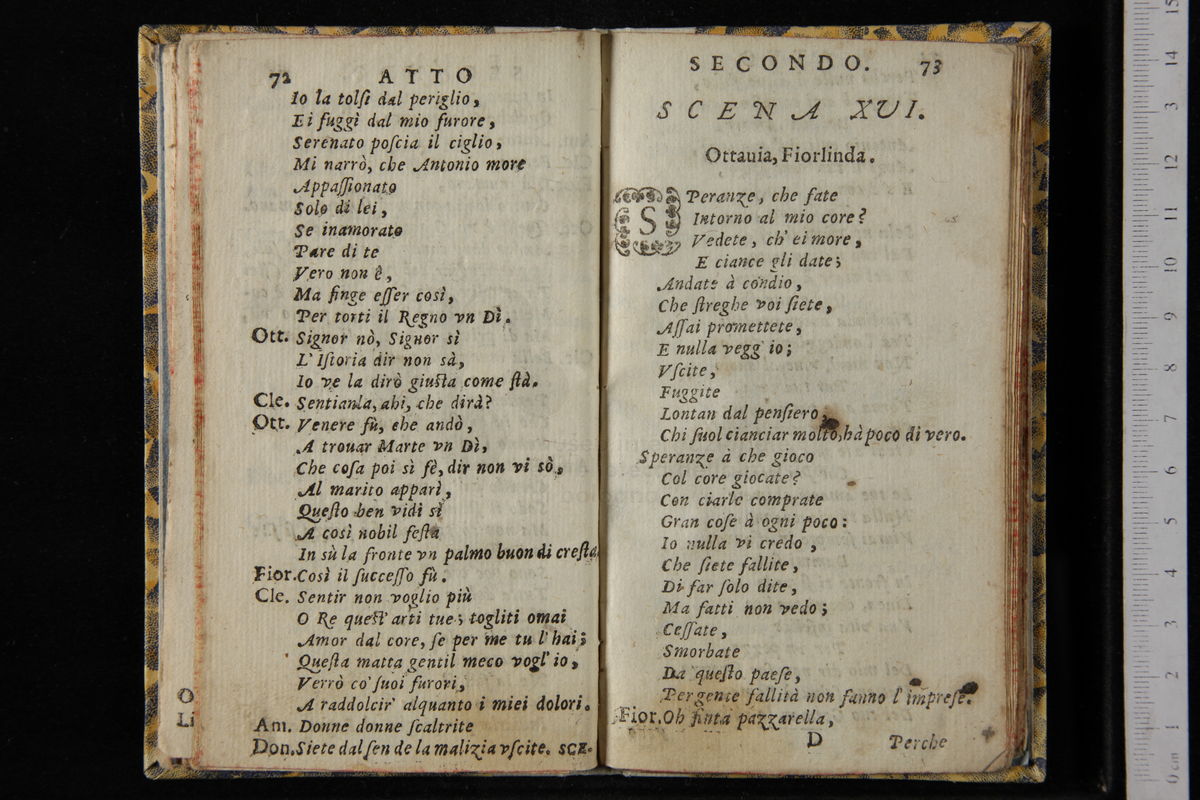 72 ATTO
Io la tolſi dal periglio,
Ei fuggì dal mio furore,
Serenato poſcia il ciglio,
Mi narrò, che Antonio more
Appaſſionato
Solo di lei,
Se inamorato
Pare di te
Vero non è,
Ma finge eſſer così,
Per torti il Regno vn Dì.
Ott. Signor nò, Signor sì
L'Iſtoria dir non sà,
Io ve la dirò giuſta come ſtà.
Cle. Sentianla, ahi, che dirà?
Ott. Venere fù, che andò,
A trouar Marte vn Dì,
Che coſa poi sì fè, dir non vi sò,
Al marito apparì,
Queſto ben vidi sì
A così nobil feſta
In sù la fronte vn palmo buon di creſta.
Fior. Così il ſucceſſo fù.
Cle. Sentir non voglio più
O Re queſt'arti tue; togliti omai
Amor dal core, ſe per me tu l'hai;
Queſta matta gentil meco vogl'io,
Verrò co' ſuoi furori,
A raddolcir' alquanto i miei dolori.
Am. Donne donne ſcaltrite
Don. Siete dal ſen de la malizia vſcite. SCE-
O
Li
SECONDO. 73
SCENA XVI.
Ottauia, Fiorlinda.
SPeranze, che fate
Intorno al mio core?
Vedete, ch'ei more,
E ciance gli date;
Andate à condio,
Che ſtreghe voi ſiete,
Aſſai promettete,
E nulla vegg'io;
Vſcite,
Fuggite
Lontan dal penſiero,
Chi ſuol cianciar molto, hà poco di vero.
Speranze à che gioco
Col core giocate?
Con ciarle comprate
Gran coſe à ogni poco:
Io nulla vi credo,
Che ſiete fallite,
Di far ſolo dite,
Ma fatti non vedo;
Ceſſate,
Smorbate
Da queſto paeſe,
Per gente fallità non fanno l'impreſe.
Fior. Oh finta pazzarella,
D Perche